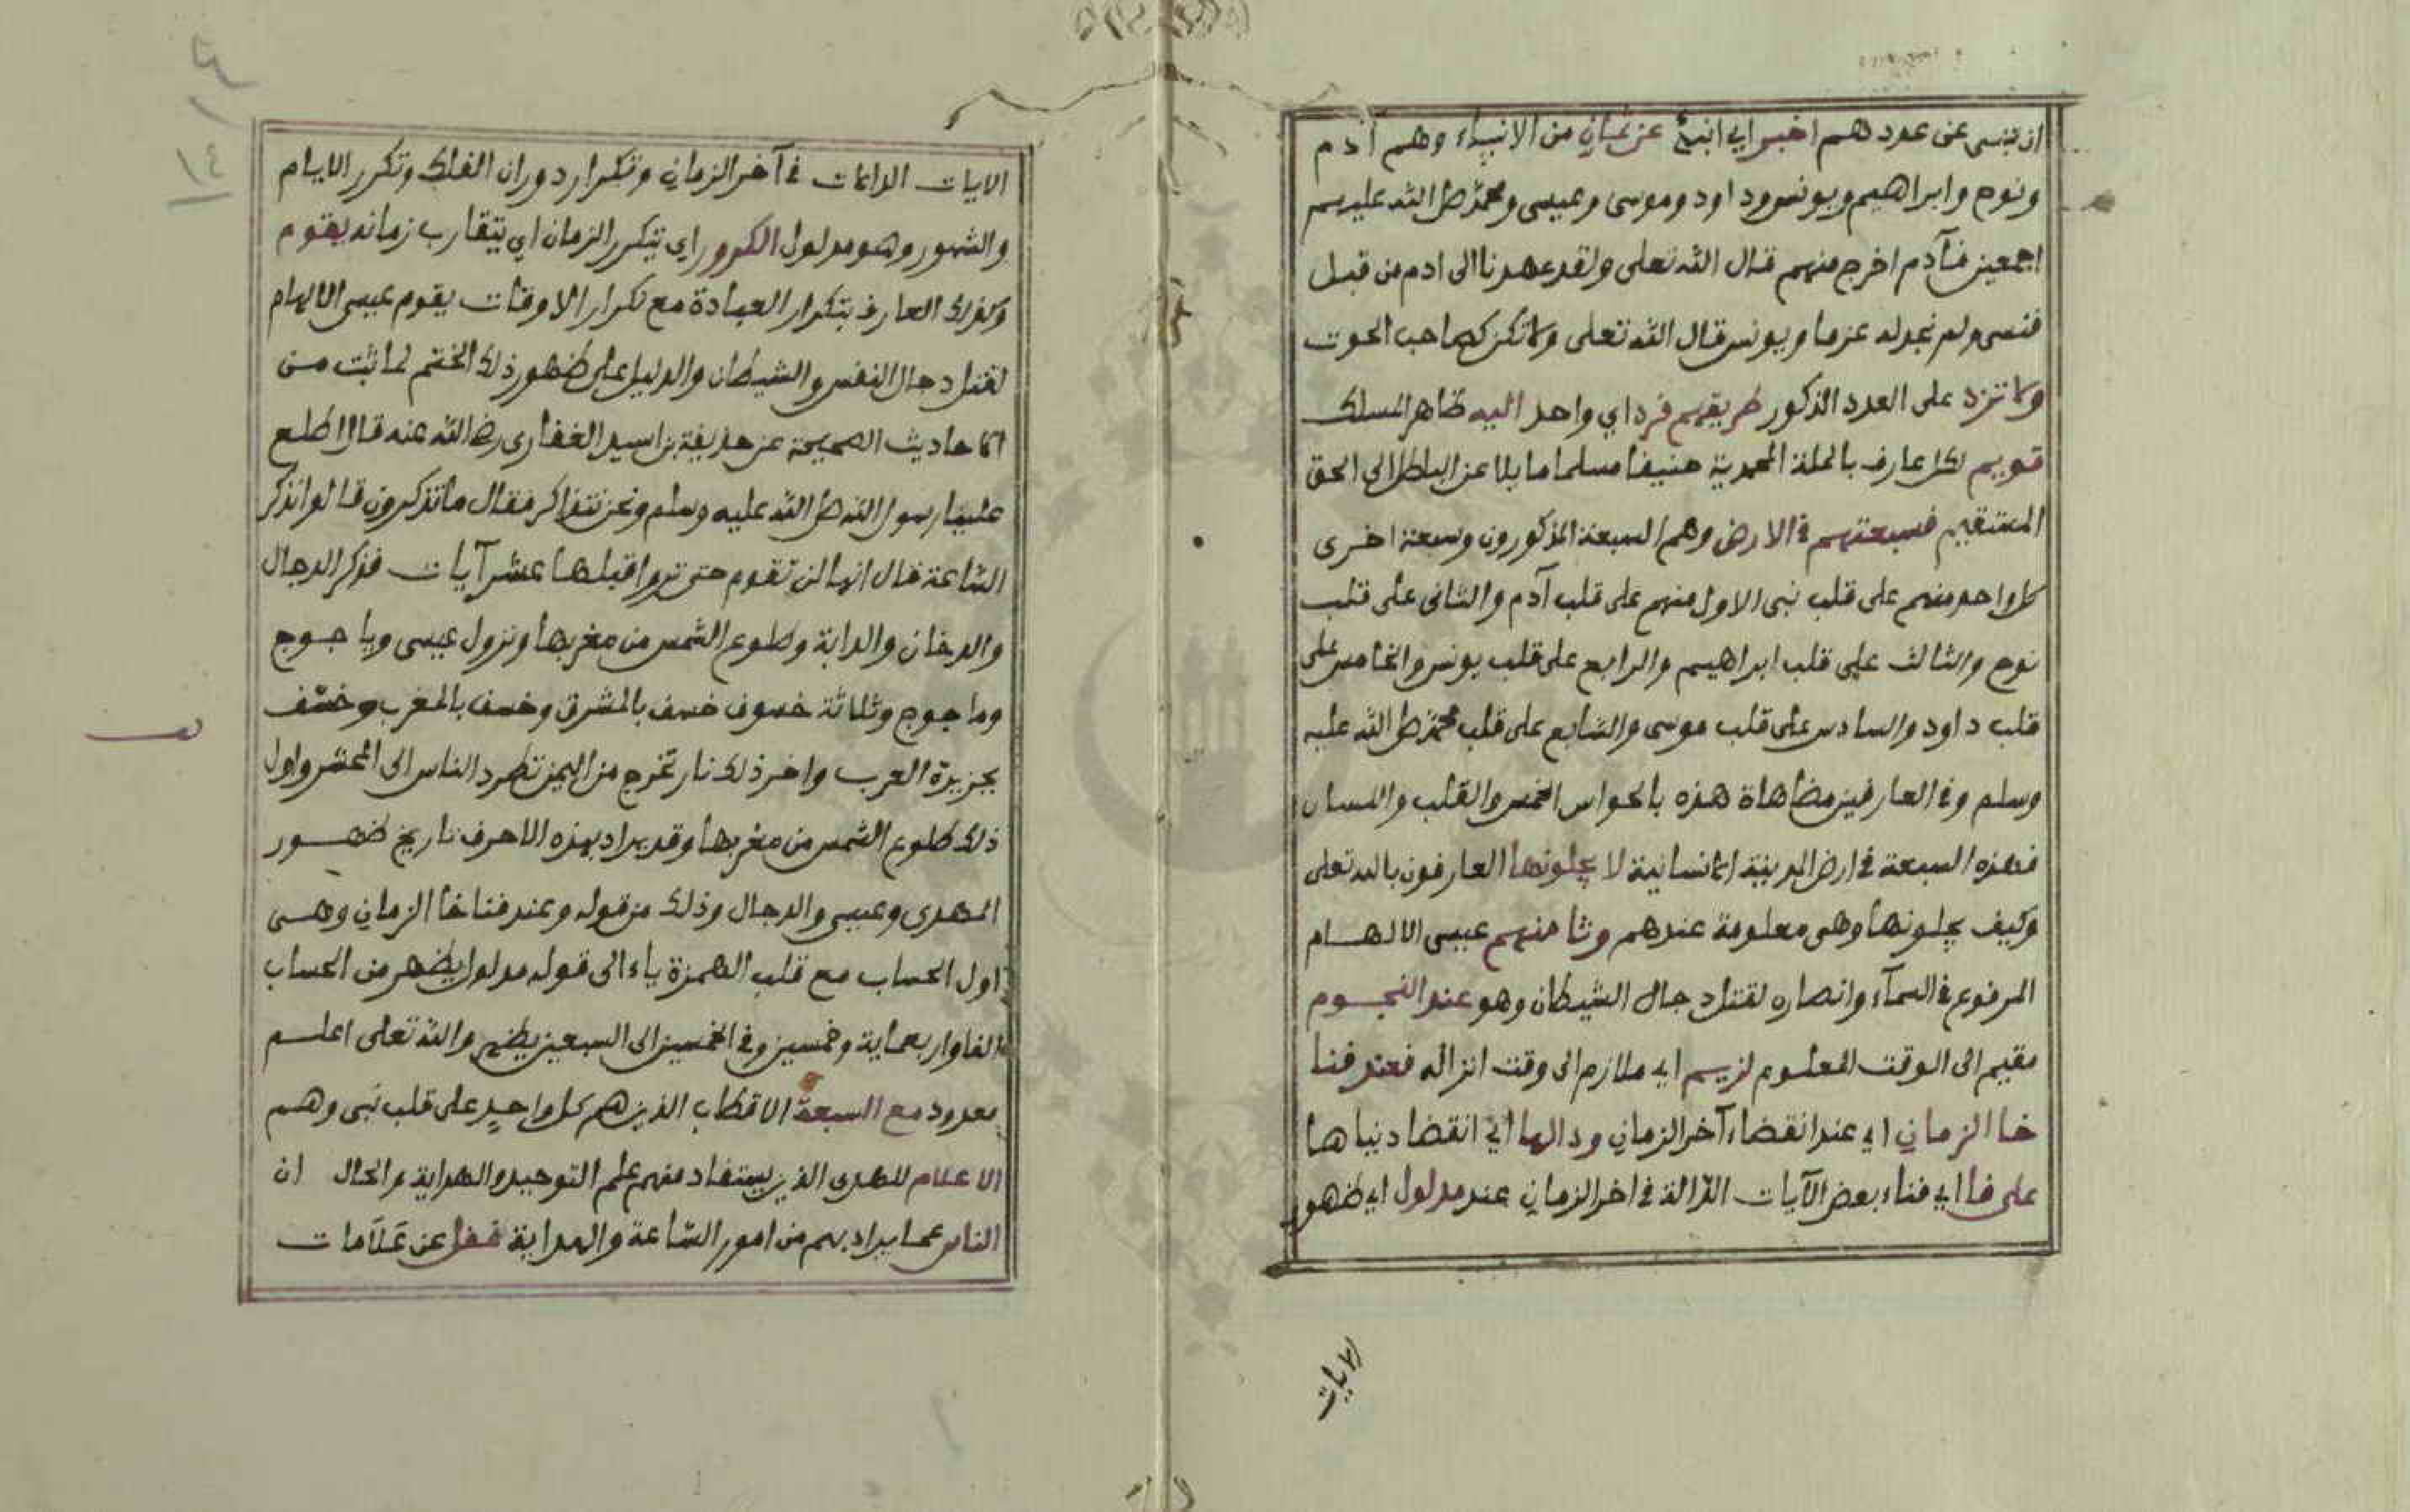 ان تنسى عن عددهم اخبر اي انبئ عن ثمان من الانبياء وهم آدم
ونوح وابراهيم ويونس وداود وموسى وعيسى ومحمد صلى الله عليهم
اجمعين فآدم اخرج منهم قال الله تعلى ولقد عهدنا الى ادم من قبل
فنسى ولم نجد له عزما ويونس قال الله تعلى ولا تكن كصاحب الحوت
ولا تزد على العدد المذكور طريقهم فرد اي واحد اليه ظاهر المسلك
قويم لكل عارف بالملة المحمدية حنيفا مسلما مايلا عن الباطل الى الحق
المستقيم فسبعتهم في الارض وهم السبعة المذكورون وسبعة اخرى
كل واحد منهم على قلب نبى الاول منهم على قلب آدم والثانى على قلب
نوح والثالث على قلب ابراهيم والرابع على قلب يونس والخامس على
قلب داود والسادس على قلب موسى والسابع على قلب محمد صلى الله عليه
وسلم وفي العارفين مضاهاة هذه بالحواس الخمس والقلب واللسان
فهذه السبعة في ارض المدينة الانسانية لا يجلونها العارفون بالله تعلى
وكيف يجلونها وهى معلومة عندهم وثامنهم عيسى الالهام
المرفوع في السمآء وانصاره لقتل دجال الشيطان وهو عند النجوم
مقيم الى الوقت المعلوم لزيم اي ملازم الى وقت انزاله فعند فنا
خا الزمان اي عند انقضاء آخر الزمان ودالها اي انقضا دنياها
على فا اي فناء بعض الآيات الدّالة في اخر الزمان عند مدلول اي ظهور
الايات
الايات الدائمات في آخر الزمان وتكرار دوران الفلك وتكرر الايام
والشهور وهو مدلول الكرور اي تتكرر الزمان اي يتقارب زمانه يقوم
وكذلك العارف بتكرار العبادة مع تكرار الاوقات يقوم عيسى الالهام
لقتل دجال النفس والشيطان والدليل على ظهور ذلك الختم لما ثبت من
الاحاديث الصحيحة عن حذيفة بن اسيد الغفارى رضى الله عنه قال اطلع
علينا رسول الله صلى الله عليه وسلم ونحن نتذاكر فقال ما تذكرون قالوا نذكر
الساعة قال انها لن تقوم حتى تروا قبلها عشر آيات فذكر الدجال
والدخان والدابة وطلوع الشمس من مغربها ونزول عيسى وياجوج
وماجوج وثلاثة خسوف خسف بالمشرق وخسف بالمغرب وخسف
بجزيرة العرب واخر ذلك نار تخرج من اليمن تطرد الناس الى المحشر واول
ذلك طلوع الشمس من مغربها وقد يراد بهذه الاحرف تاريخ ظهور
المهدى وعيسى والدجال وذلك من قوله وعند فنا خا الزمان وهى
اول الحساب مع قلب الهمزة ياء الى قوله مدلول يظهر من الحساب
الفا واربعماية وخمسين وفي الخمسين الى السبعين يظهر والله تعلى اعلم
معدود مع السبعة الاقطاب الذين هم كل واحدٍ على قلب نبى وهم
الاعلام للهدى الذين يستفاد منهم علم التوحيد والهداية والحال ان
الناس عما يراد بهم من امور الساعة والهداية غفل عن علامات